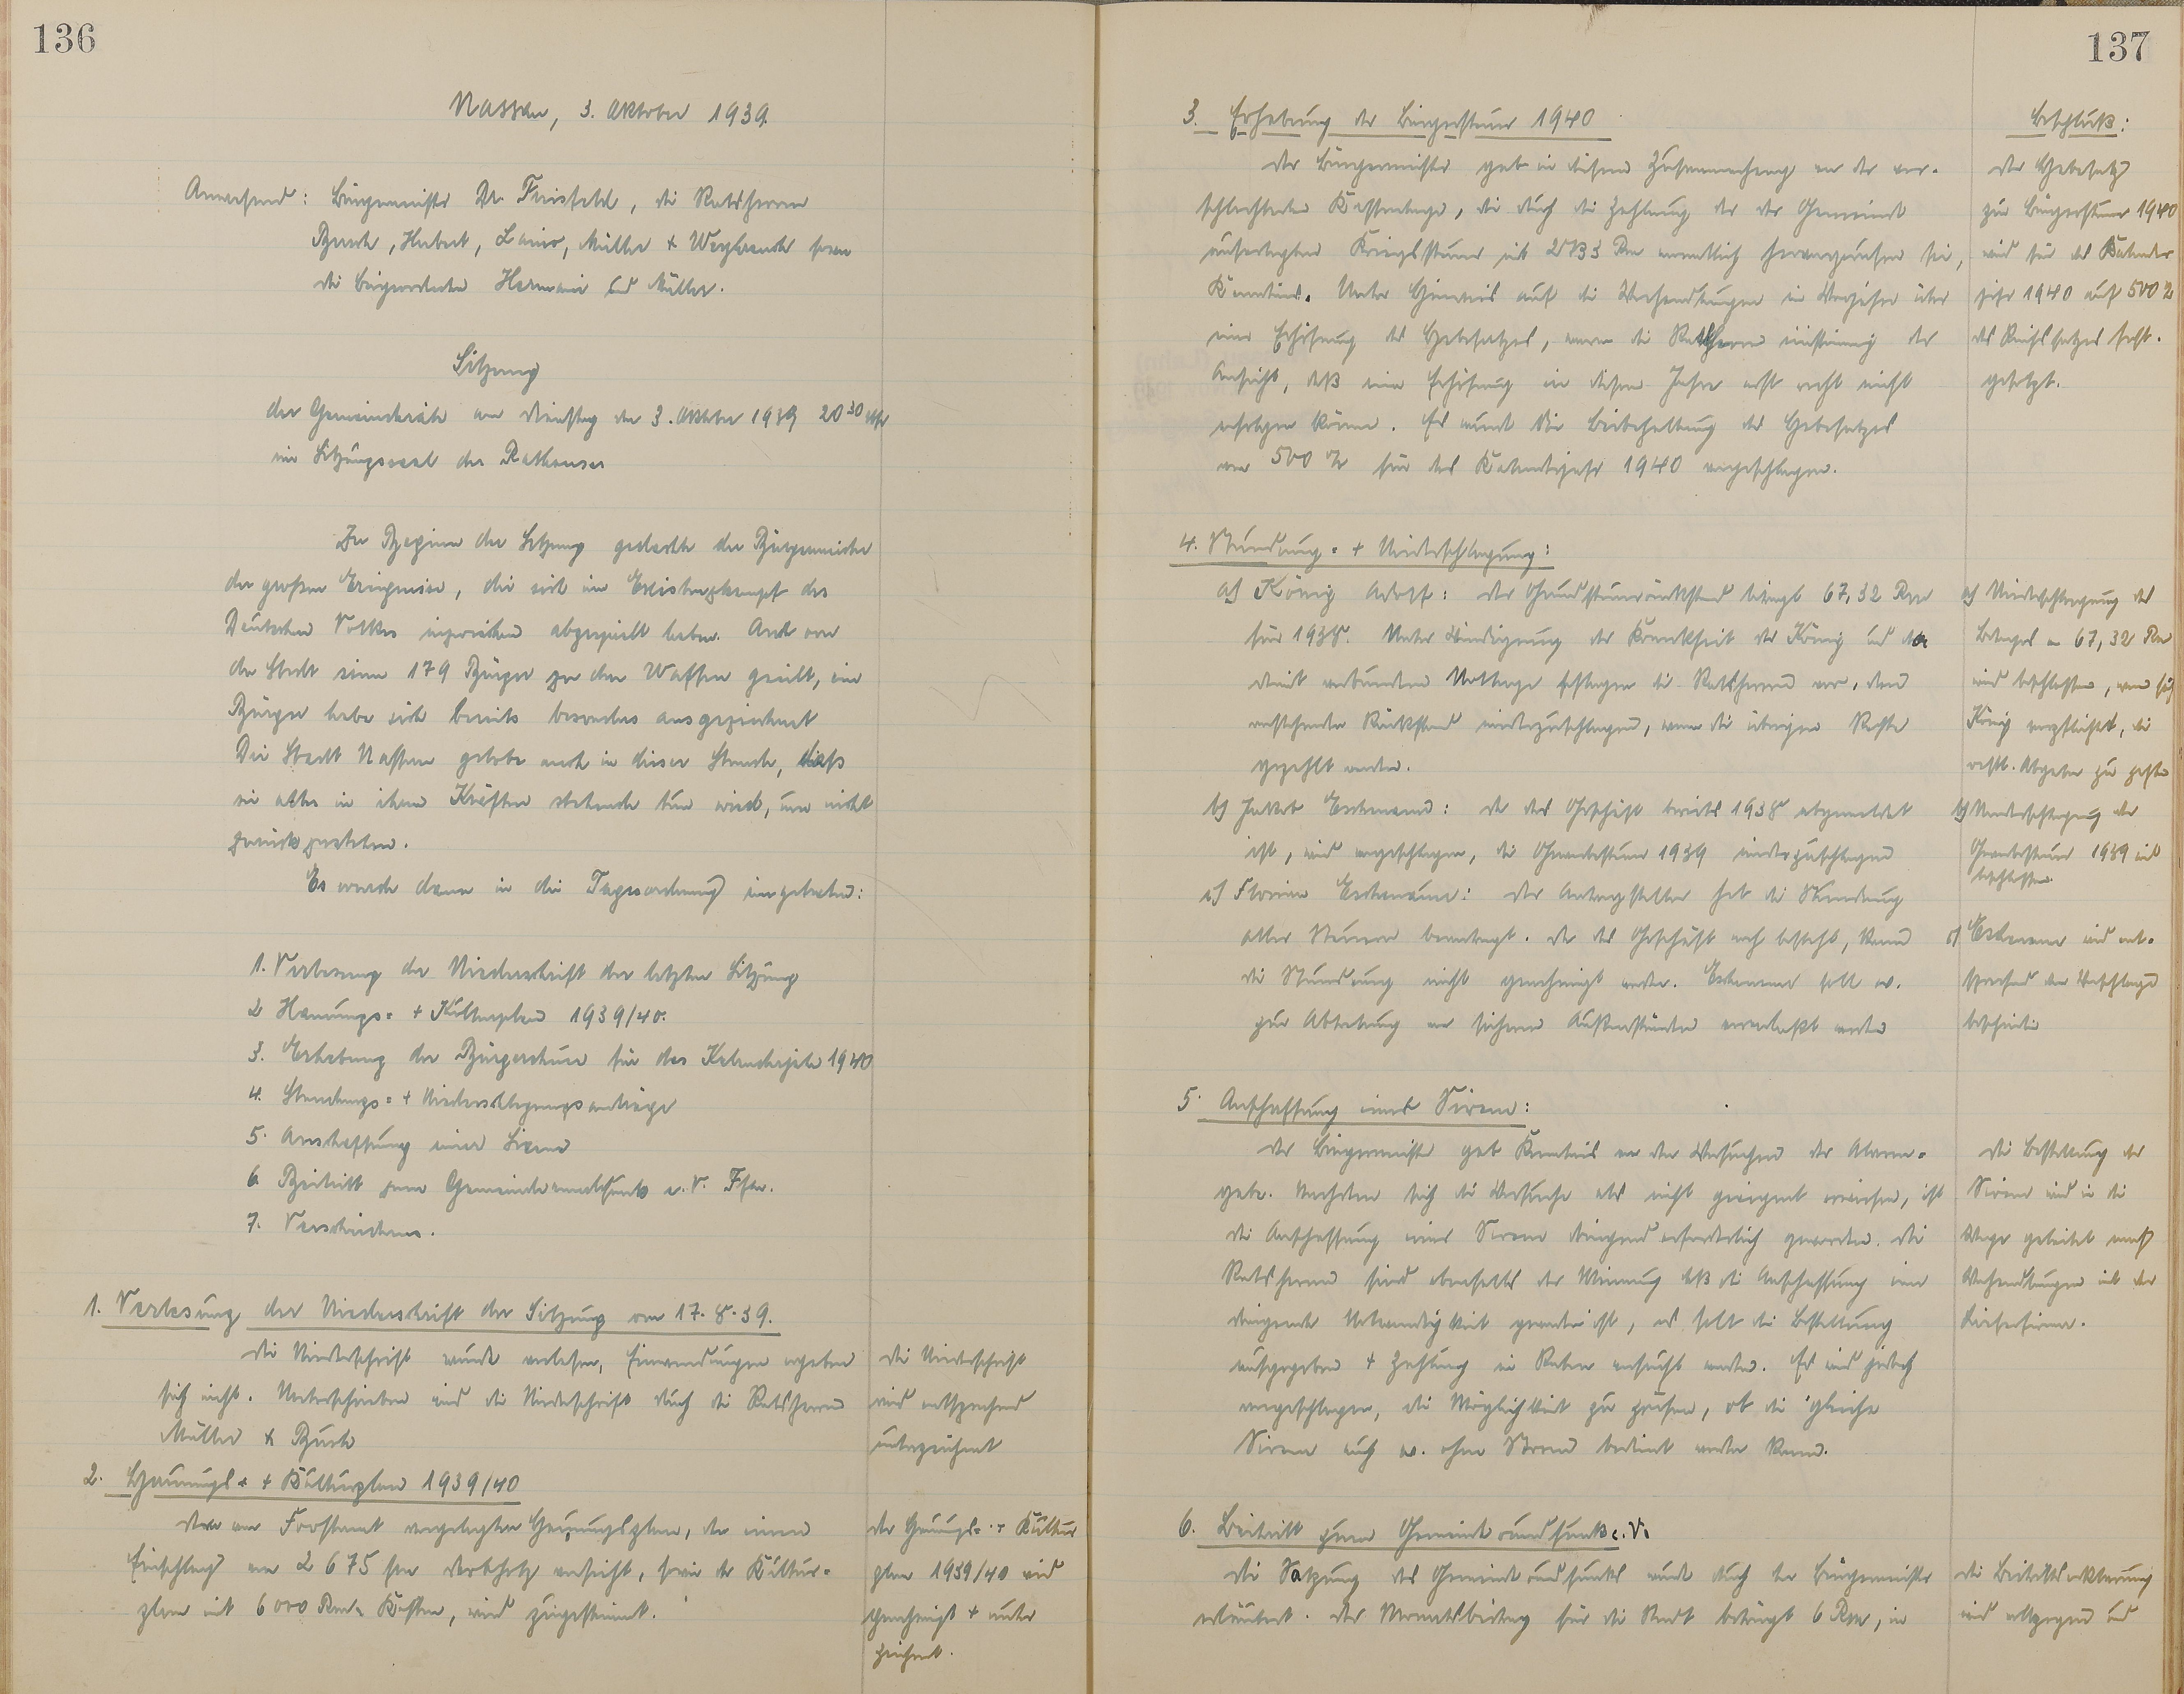 136
Nassau, 3. Oktober 1939.
Anwesend: Bürgermeister Dr. Feinfeld, die Ratsherren
Busch, Hubert, Lanio, Müller + Weyhrauch sowie
die Beigeordneten Hermani und Müller.
Sitzung
der Gemeinderäte am Dienstag den 3. Oktober 1939 20³⁰ Uhr
im Sitzungssaal des Rathauses
Zu Beginn der Sitzung gedachte der Bürgermeister
der großen Ereignisse, die sich im Existenzkampf des
Deutschen Volkes inzwischen abgespielt haben. Auch von
der Stadt seien 179 Bürger zu den Waffen geeilt, ein
Bürger habe sich bereits besonders ausgezeichnet
Die Stadt Nassau gelobe auch in dieser Stunde, dass
sie alles in ihren Kräften stehende tun wird, um nicht
zurückzustehen.
Es wurde dann in die Tagesordnung eingetreten:
1. Verlesung der Niederschrift der letzten Sitzung
2 Hauungs= + Kulturplan 1939/40.
3. Erhebung der Bürgersteuer für das Kalenderjahr 1940
4. Stundungs= + Niederschlagungsanträge
5. Anschaffung einer Sirene
6. Beitritt zum Gemeinderundfunk e. V. Ffm.
7. Verschiedenes.
1. Verlesung der Niederschrift der Sitzung vom 17.8.39.
Die Niederschrift wurde verlesen, Einwendungen ergeben
sich nicht. Unterschrieben wird die Niederschrift durch die Ratsherren
Müller & Busch
Die Niederschrift
wird entsprechend
unterzeichnet
2. Hauungs= + Kulturplan 1939/40
Dem vom Forstamt vorgelegten Hauungsplan, der einen
Einschlag von 2 675 fm Derbholz vorsieht, sowie der Kultur=
plan mit 6 000 Rm. Kosten, wird zugestimmt.
Der Hauungs= + Kultur
plan 1939/40 wird
genehmigt + unter
zeichnet.
137
3. Erhebung der Bürgersteuer 1940
Der Bürgermeister gab in diesem Zusammenhang von der ver=
schlechterten Kassenlage, die durch die Zahlung der der Gemeinde
auferlegten Kriegssteuer mit 2833 Rm monatlich hervorgerufen sei,
Kenntnis. Unter Hinweis auf die Verhandlungen im Vorjahre über
eine Erhöhung des Hebesatzes, waren die Ratsherren einstimmig der
Ansicht, daß eine Erhöhung in diesem Jahre erst recht nicht
erfolgen könne. Es wurde die Beibehaltung des Hebesatzes
von 500 % für das Kalenderjahr 1940 vorgeschlagen.
Beschluß:
Der Hebesatz
zur Bürgersteuer 1940
wird für das Kalender
jahr 1940 auf 500 %
des Reichssatzes fest=
gesetzt.
4. Stundung= + Niederschlagung:
a) König Adolf: Der Grundsteuerrückstand beträgt 67,32 Rm
für 1938. Unter Würdigung der Krankheit des König und der
damit verbundenen Notlage schlagen die Ratsherren vor, den
entstehenden Rückstand niederzuschlagen, wenn die übrigen Reste
gezahlt werden.
a) Niederschlagung des
Betrages v. 67,32 Rm
wird beschlossen, wenn sich
König verpflichtet, die
restl. Abgaben zu zahlen
b) Jakob Eschenauer: Da das Geschäft bereits 1938 abgemeldet
ist, wird vorgeschlagen, die Gewerbesteuer 1939 niederzuschlagen
b) Niederschlagung der
Gewerbesteuer 1939 wird
beschlossen.
c) Florian Eschenauer: Der Antragsteller hat die Stundung
aller Steuern beantragt. Da das Geschäft noch besteht, kann
die Stundung nicht genehmigt werden. Eschenauer soll ev.
zur Abtretung von sicheren Außenständen veranlaßt werden
c) Eschenauer wird ent=
sprechend dem Vorschlage
beschieden
5. Anschaffung einer Sirene:
Der Bürgermeister gab Kenntnis von den Versuchen der Alarm=
gabe. Nachdem sich die Versuche als nicht geeignet erwiesen, ist
die Anschaffung einer Sirene dringend erforderlich geworden. Die
Ratsherren sind ebenfalls der Meinung daß die Anschaffung eine
dringende Notwendigkeit geworden ist, es soll die Bestellung
aufgegeben + Zahlung in Raten versucht werden. Es wird jedoch
vorgeschlagen, die Möglichkeit zu prüfen, ob die gleiche
Sirene auch ev. ohne Strom bedient werden kann.
Die Bestellung der
Sirene wird in die
Wege geleitet nach
Verhandlungen mit der
Lieferfirma.
6. Beitritt zum Gemeinderundfunk e.V.
Die Satzung des Gemeinderundfunks wurde durch den Bürgermeister
erläutert. Der Monatsbeitrag für die Stadt beträgt 6 Rm, in
Die Beitrittserklärung
wird vollzogen und